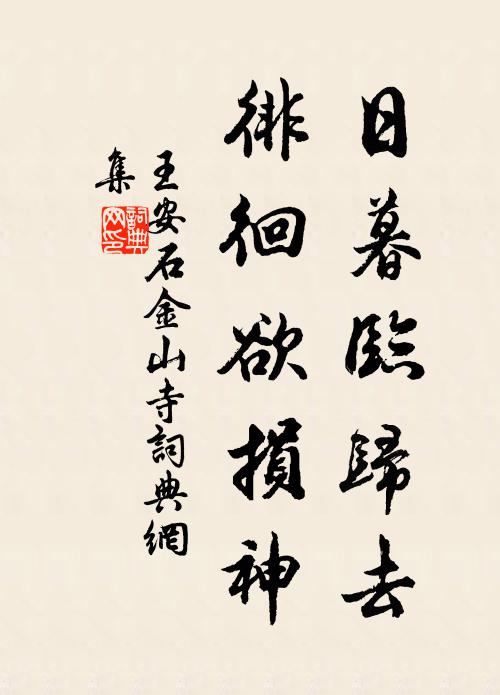 日暮臨歸去
徘徊欲損神
王安石金山寺詞典網
集
詞典
网印